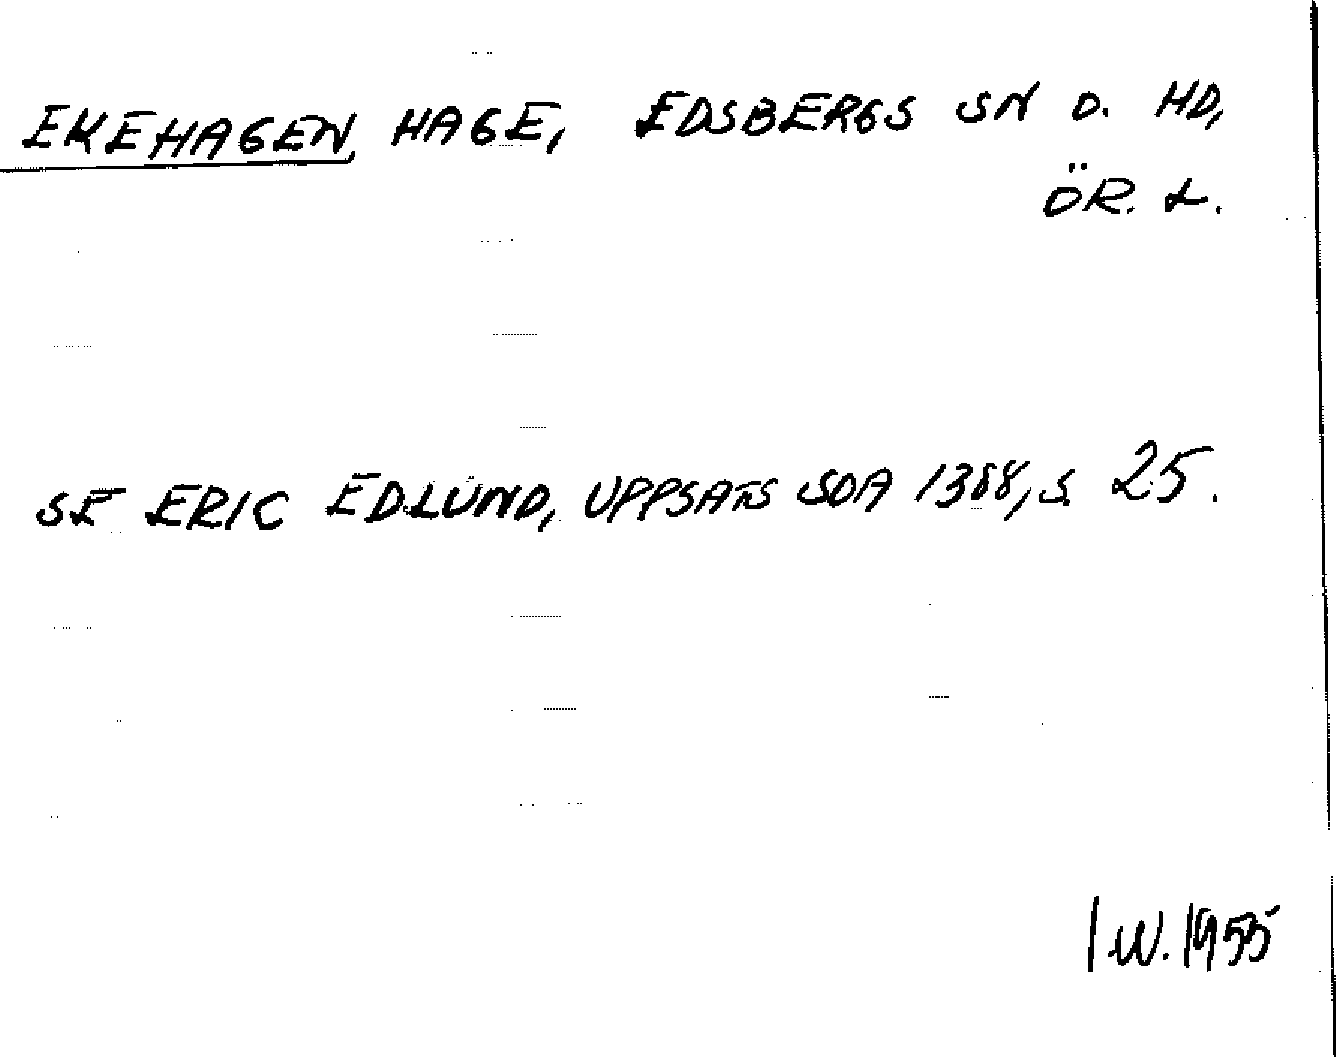 EKEHAGEN, HAGE, EDSBERGS SN O. HD,
ÖR. L.
SE ERIC EDLUND, UPPSATS SOA 1388, S. 25.
I W. 1955